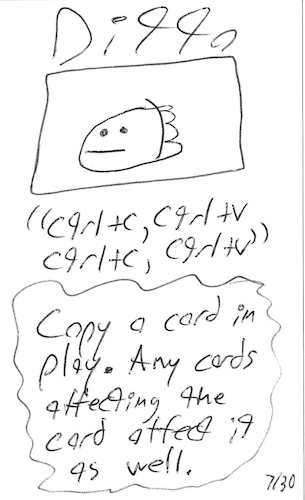 Ditto
"Ctrl+c, Ctrl+v
Ctrl+c, Ctrl+v"
Copy a card in
play. Any cards
affecting the
card affect it
as well.
7/30